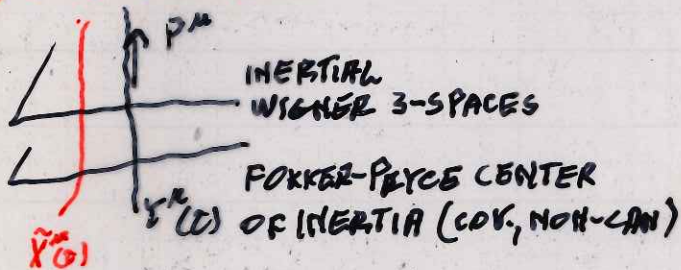 P^μ
INERTIAL
WIGNER 3-SPACES
FOKKER-PRYCE CENTER
Y^μ(τ) OF INERTIA (COV., NON-CAN)
x̃^μ(τ)